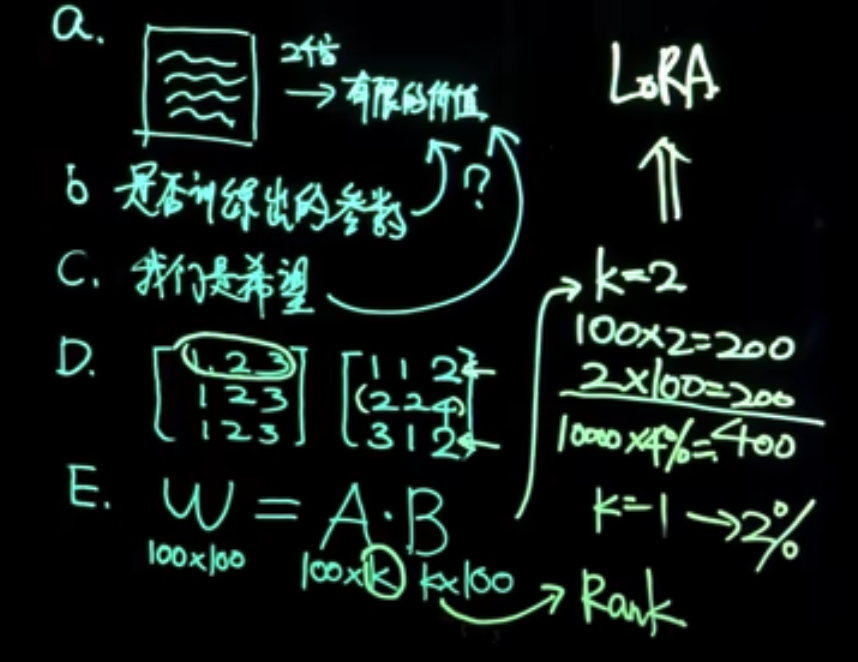 a.
2千字
→ 有限的价值
b 是否训练出的参数 ?
C. 我们是希望
D. [1 2 3
1 2 3
1 2 3] [1 1 2
(2 2 4)
3 1 2]
E. W = A · B
100×100 100×k k×100
Rank
k=2
100×2=200
2×100=200
10000×4%=400
k=1 → 2%
LoRA